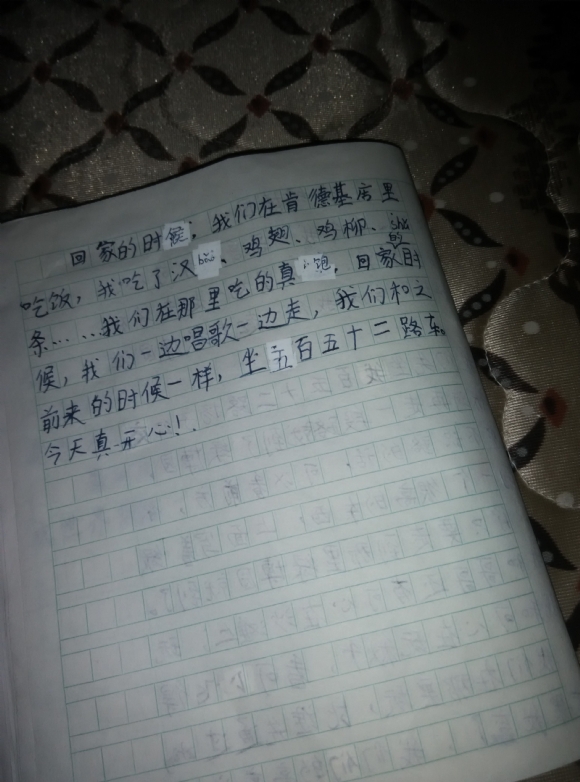 回家的时候，我们在肯德基店里
吃饭，我吃了汉、鸡翅、鸡柳、
条……我们在那里吃的真饱，回家的时
候，我们一边唱歌一边走，我们和之
前来的时候一样，坐五百五十二路车。
今天真开心！